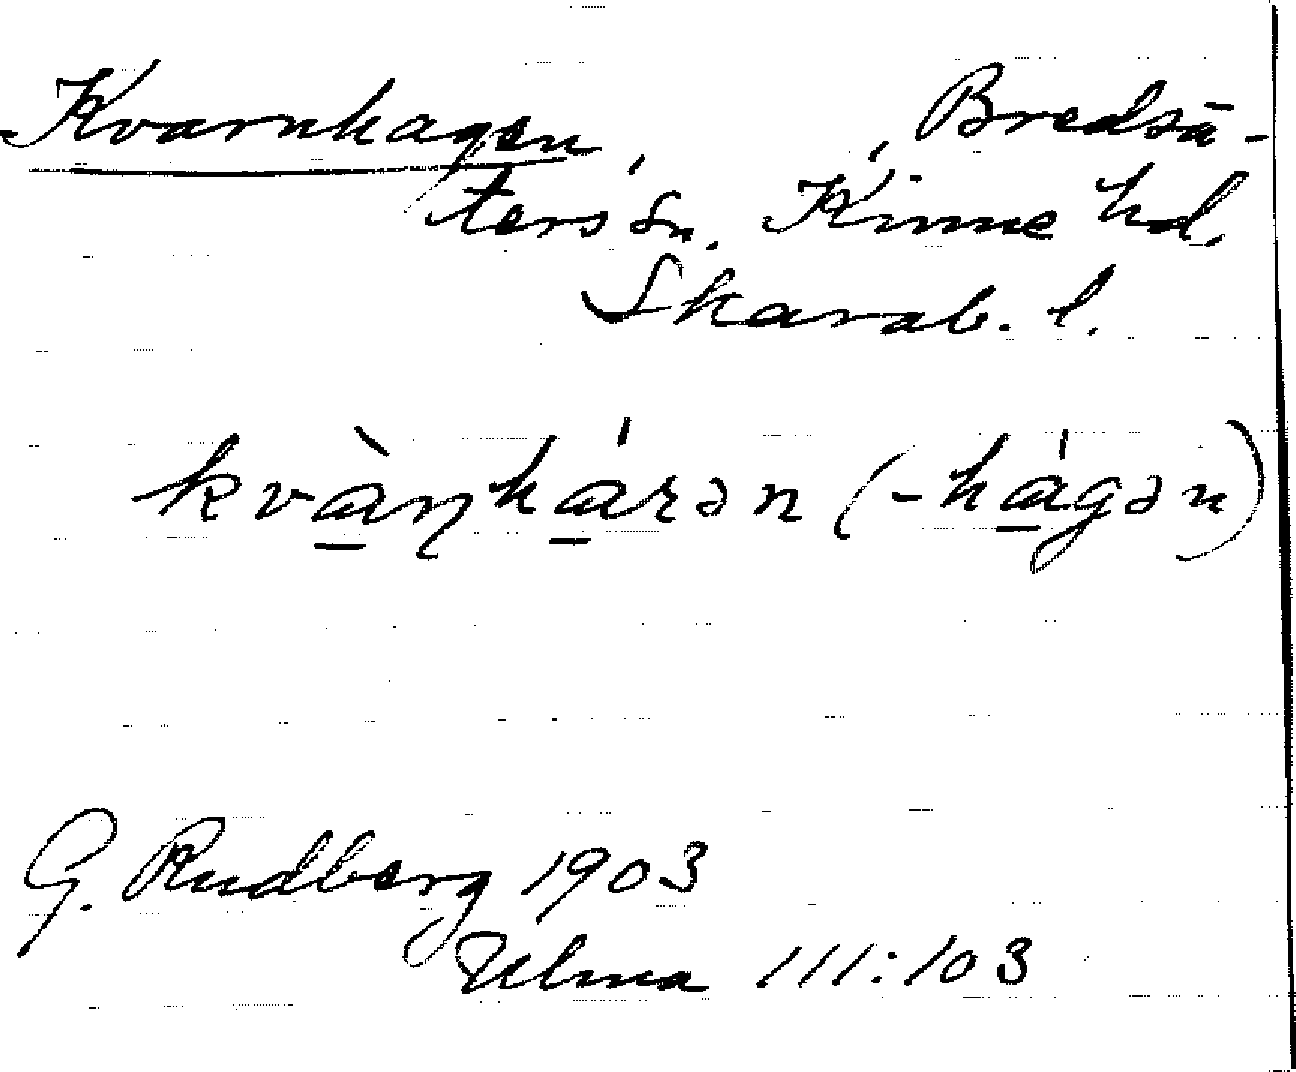 Kvarnhagen, , Bredsä-
ters sn. Kinne hd.
Skarab. l.
kvàɳhárən (-hágən)
G. Rudberg 1903
Ulma 111:103